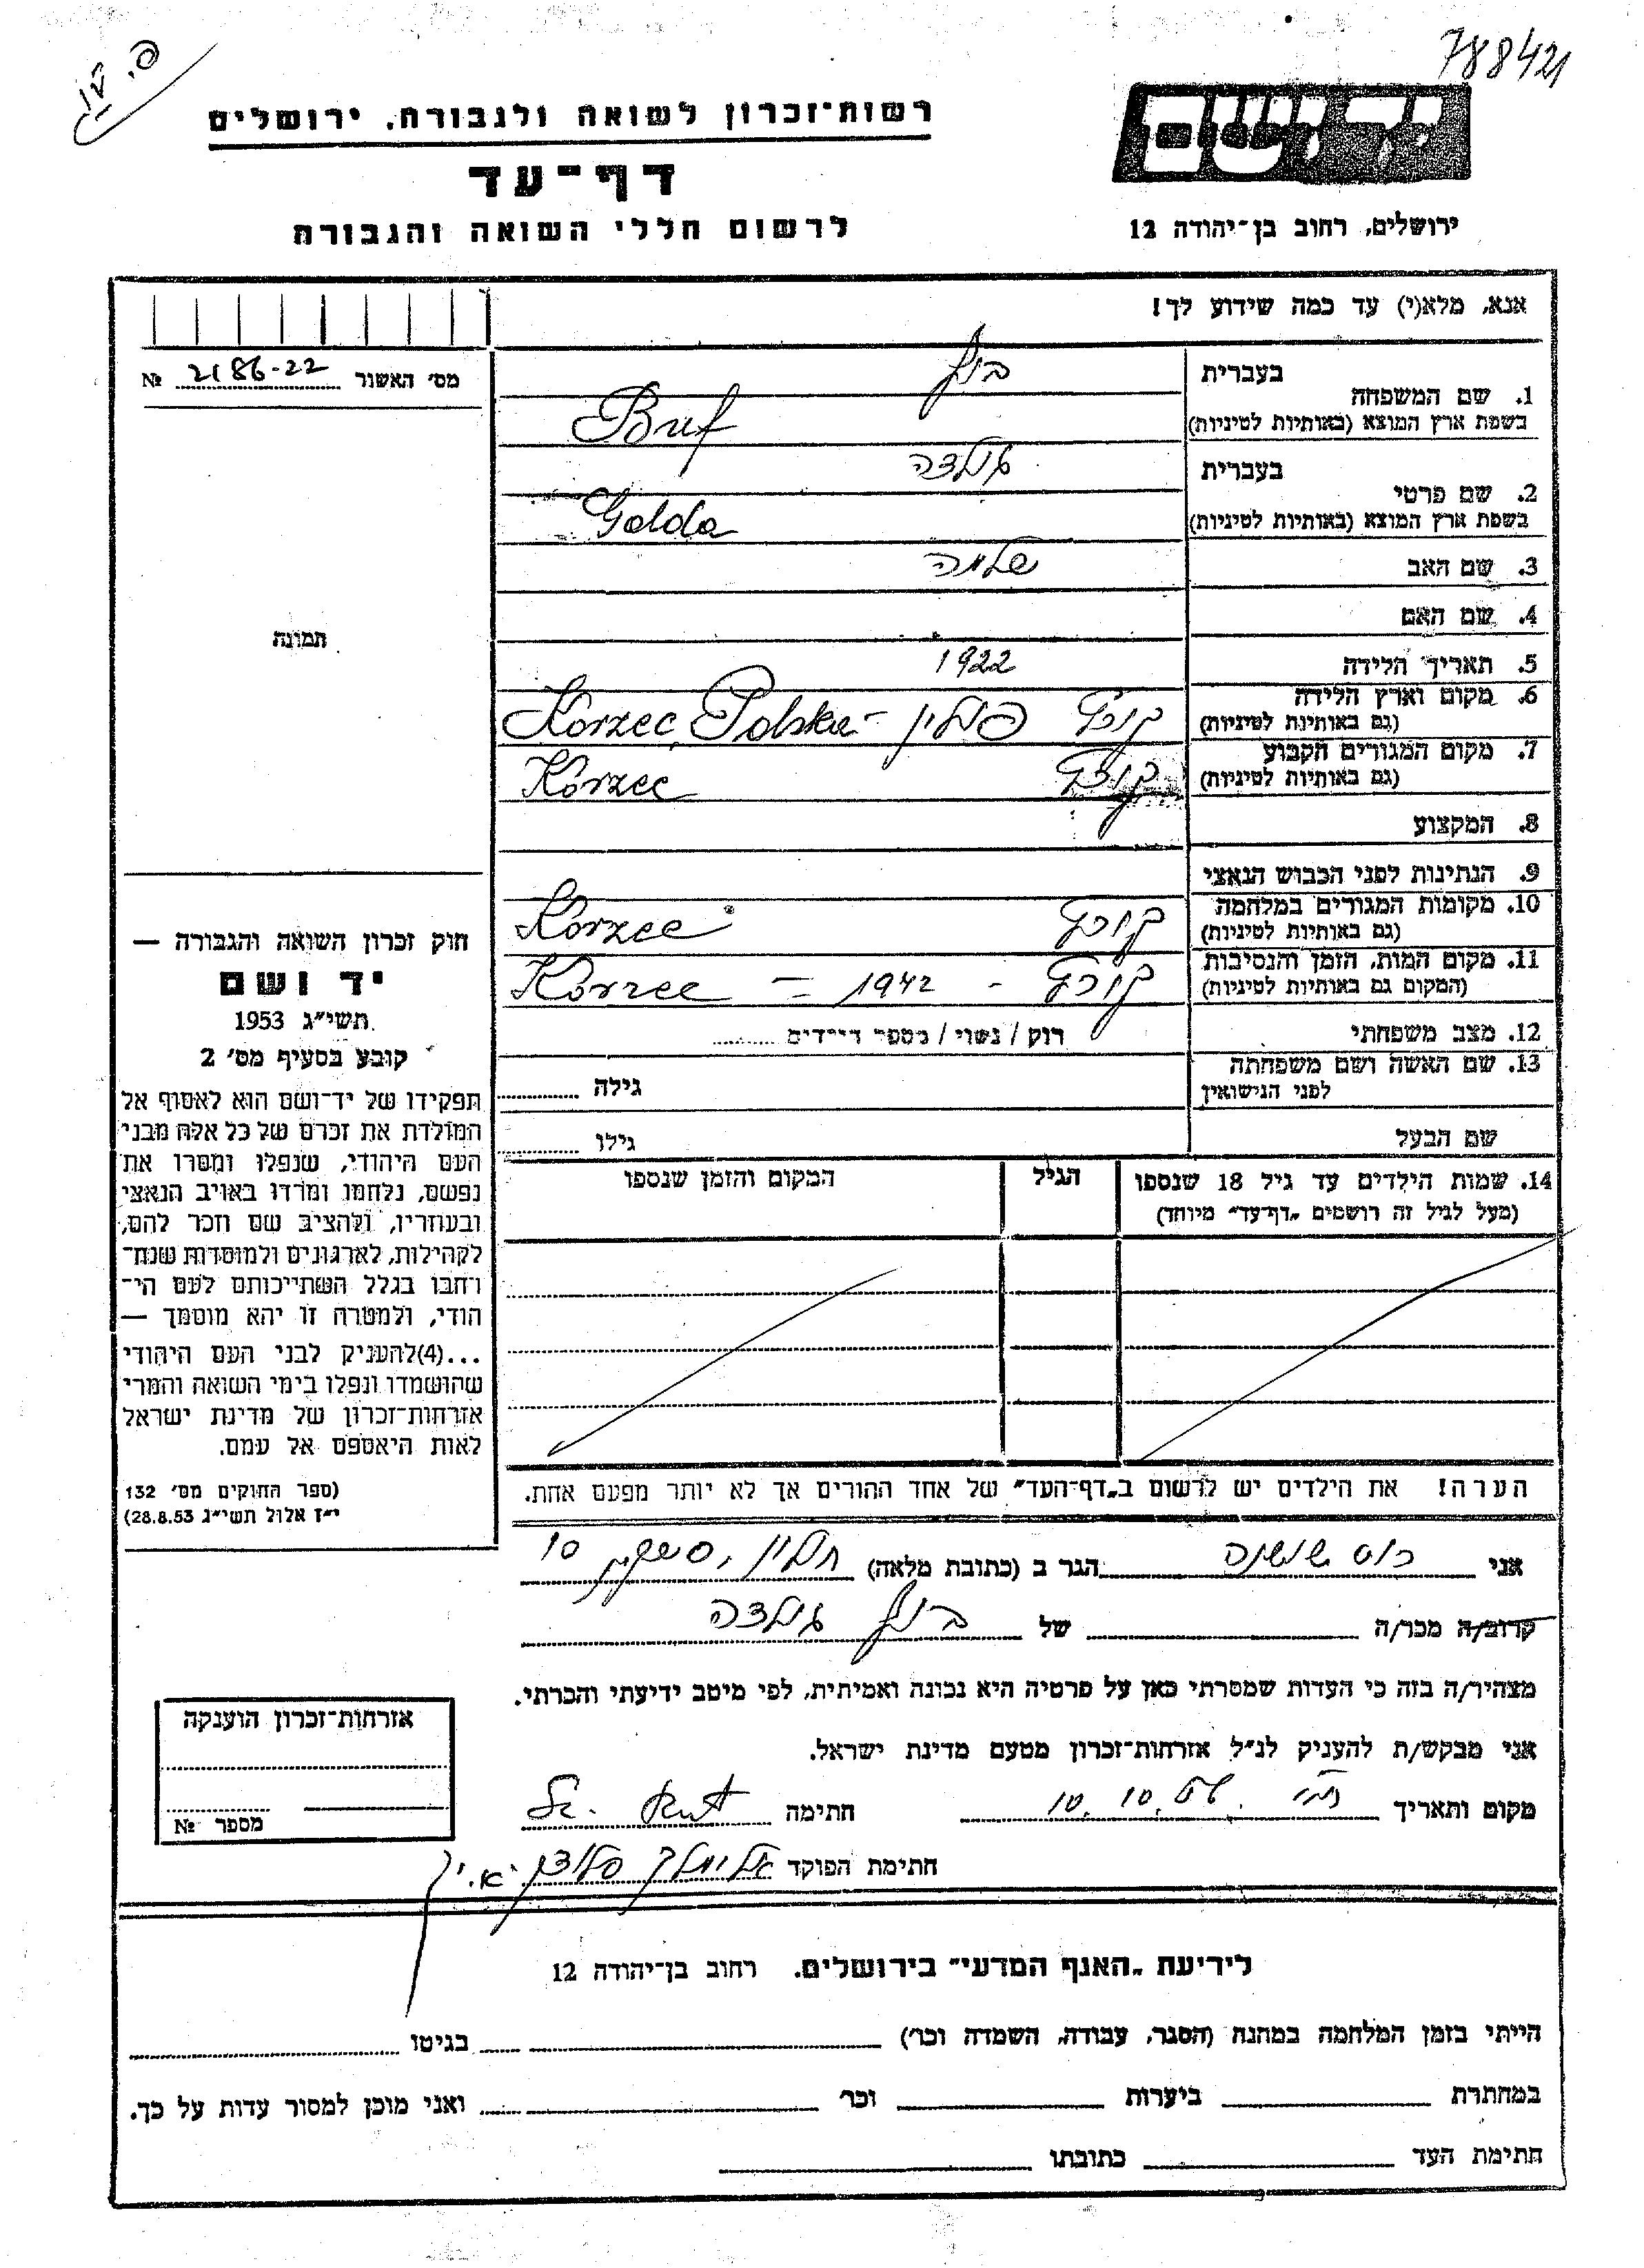 788421
פ. ש.
יד ושם
רשות־זכרון לשואה ולגבורה, ירושלים
דף־עד
לרשום חללי השואה והגבורה
ירושלים, רחוב בן־יהודה 12
אנא, מלא(י) עד כמה שידוע לך!
מס׳ האשור 2186-22 №
תמונה
בעברית בוף
1. שם המשפחה
בשפת ארץ המוצא (באותיות לטיניות) Buf
בעברית גולדה
2. שם פרטי
בשפת ארץ המוצא (באותיות לטיניות) Golda
3. שם האב שלמה
4. שם האם
5. תאריך הלידה 1922
6. מקום וארץ הלידה
(גם באותיות לטיניות) קורץ פולין - Korzec, Polska
7. מקום המגורים הקבוע
(גם באותיות לטיניות) קורץ Korzec
8. המקצוע
9. הנתינות לפני הכבוש הנאצי
10. מקומות המגורים במלחמה
(גם באותיות לטיניות) קורץ Korzec
11. מקום המות, הזמן והנסיבות
(המקום גם באותיות לטיניות) קורץ - 1942 - Korzec
12. מצב משפחתי רוק / נשוי / מספר הילדים
13. שם האשה ושם משפחתה
לפני הנישואין גילה
שם הבעל גילו
14. שמות הילדים עד גיל 18 שנספו הגיל המקום והזמן שנספו
(מעל לגיל זה רושמים „דף־עד״ מיוחד)
הערה! את הילדים יש לרשום ב„דף־העד״ של אחד ההורים אך לא יותר מפעם אחת.
חוק זכרון השואה והגבורה —
יד ושם
תשי״ג 1953
קובע בסעיף מס׳ 2
תפקידו של יד־ושם הוא לאסוף אל
המולדת את זכרם של כל אלה מבני
העם היהודי, שנפלו ומסרו את
נפשם, נלחמו ומרדו באויב הנאצי
ובעוזריו, ולהציב שם וזכר להם,
לקהילות, לארגונים ולמוסדות שנח־
רחבו בגלל השתייכותם לעם הי־
הודי, ולמטרה זו יהא מוסמך —
...(4)להעניק לבני העם היהודי
שהושמדו ונפלו בימי השואה והמרי
אזרחות־זכרון של מדינת ישראל
לאות היאספם אל עמם.
(ספר החוקים מס׳ 132
י״ז אלול תשי״ג 28.8.53)
אני שושנה הגר ב (כתובת מלאה) חולון, סוקולוב 10
קרוב/ה מכר/ה של בוף גולדה
מצהיר/ה בזה כי העדות שמסרתי כאן על פרטיה היא נכונה ואמיתית, לפי מיטב ידיעתי והכרתי.
אני מבקש/ת להעניק לנ״ל אזרחות־זכרון מטעם מדינת ישראל.
מקום ותאריך 10. 10. חתימה
חתימת הפוקד אלימלך
אזרחות־זכרון הוענקה
מספר №
לידיעת „האגף המדעי״ בירושלים. רחוב בן־יהודה 12
הייתי בזמן המלחמה במחנה (הסגר, עבודה, השמדה וכר׳) בגיטו
במחתרת ביערות וכר׳ ואני מוכן למסור עדות על כך.
חתימת העד כתובתו